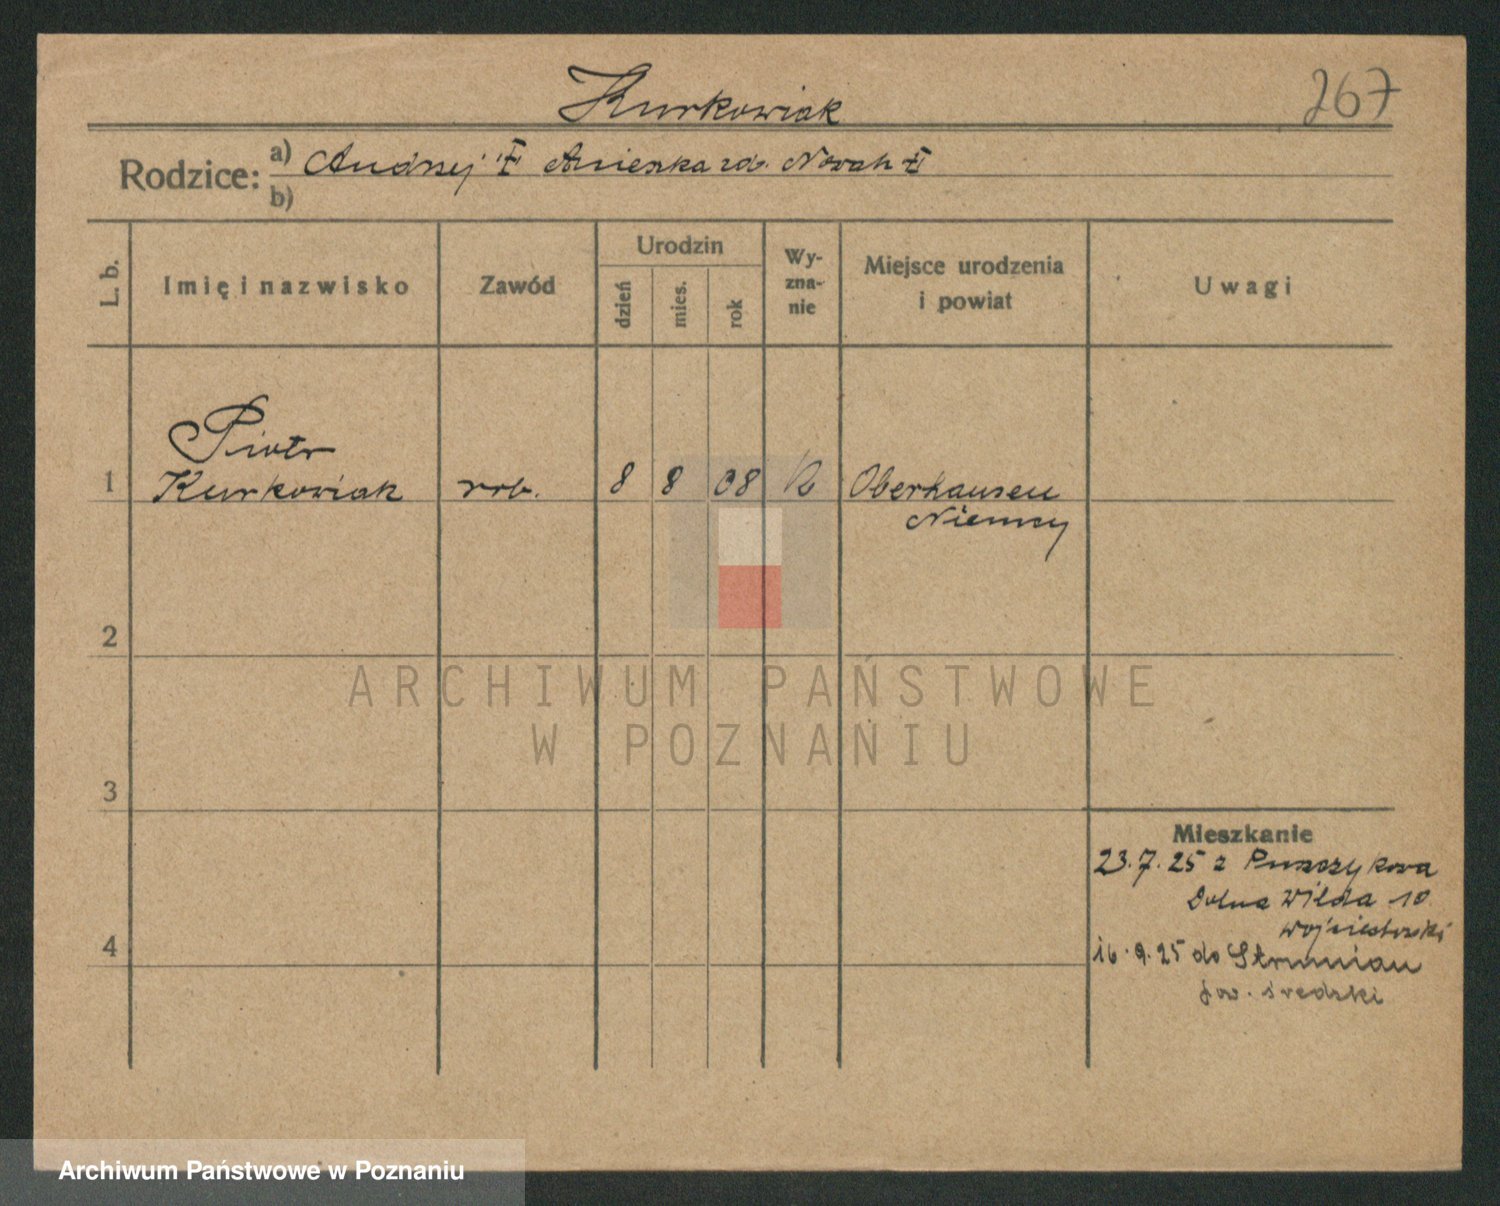 Kurkowiak
267
Rodzice: a) Andrzej Anieszka zd. Nowak
b)
L. b.
Imię i nazwisko
Zawód
Urodzin
dzień
mies.
rok
Wy-
zna-
nie
Miejsce urodzenia
i powiat
Uwagi
Piotr
1 Kurkowiak rob. 8 8 08 K Oberhausen
Niemcy
2
ARCHIWUM PAŃSTWOWE
W POZNANIU
3
Mieszkanie
23.7.25 z Puszczykowa
Dolna Wilda 10
4
16.9.25 do Strumian
pow. średzki
Archiwum Państwowe w Poznaniu